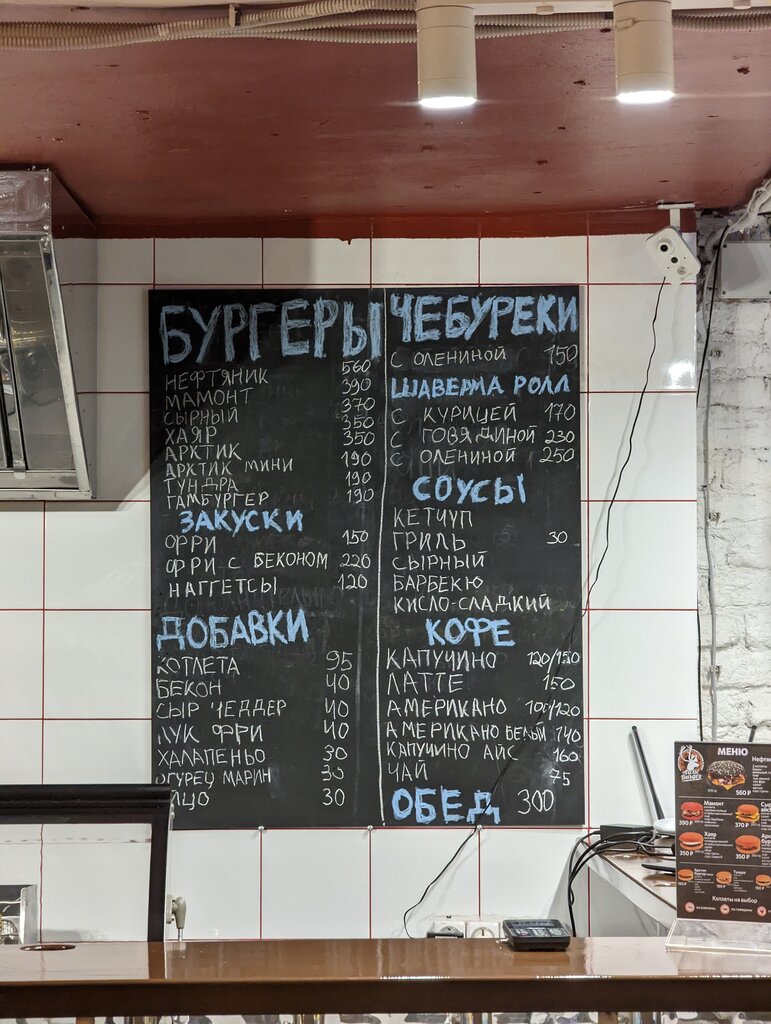 БУРГЕРЫ
НЕФТЯНИК 560
МАМОНТ 390
СЫРНЫЙ 370
ХАЯР 350
АРКТИК 350
АРКТИК МИНИ 190
ТУНДРА 190
ГАМБУРГЕР 190
ЗАКУСКИ
ФРИ 150
ФРИ С БЕКОНОМ 220
НАГГЕТСЫ 120
ДОБАВКИ
КОТЛЕТА 95
БЕКОН 40
СЫР ЧЕДДЕР 40
ЛУК ФРИ 40
ХАЛАПЕНЬО 30
ОГУРЕЦ МАРИН 30
ЯЙЦО 30
ЧЕБУРЕКИ
С ОЛЕНИНОЙ 150
ШАВЕРМА РОЛЛ
С КУРИЦЕЙ 170
С ГОВЯДИНОЙ 230
С ОЛЕНИНОЙ 250
СОУСЫ
КЕТЧУП
ГРИЛЬ 30
СЫРНЫЙ
БАРБЕКЮ
КИСЛО-СЛАДКИЙ
КОФЕ
КАПУЧИНО 120/150
ЛАТТЕ 150
АМЕРИКАНО 100/120
АМЕРИКАНО БЕЛЫЙ 140
КАПУЧИНО АЙС 160
ЧАЙ 75
ОБЕД 300
МЕНЮ
560 ₽
Мамонт
390 ₽
370 ₽
Хаяр
350 ₽
350 ₽
Тундра
Котлеты на выбор